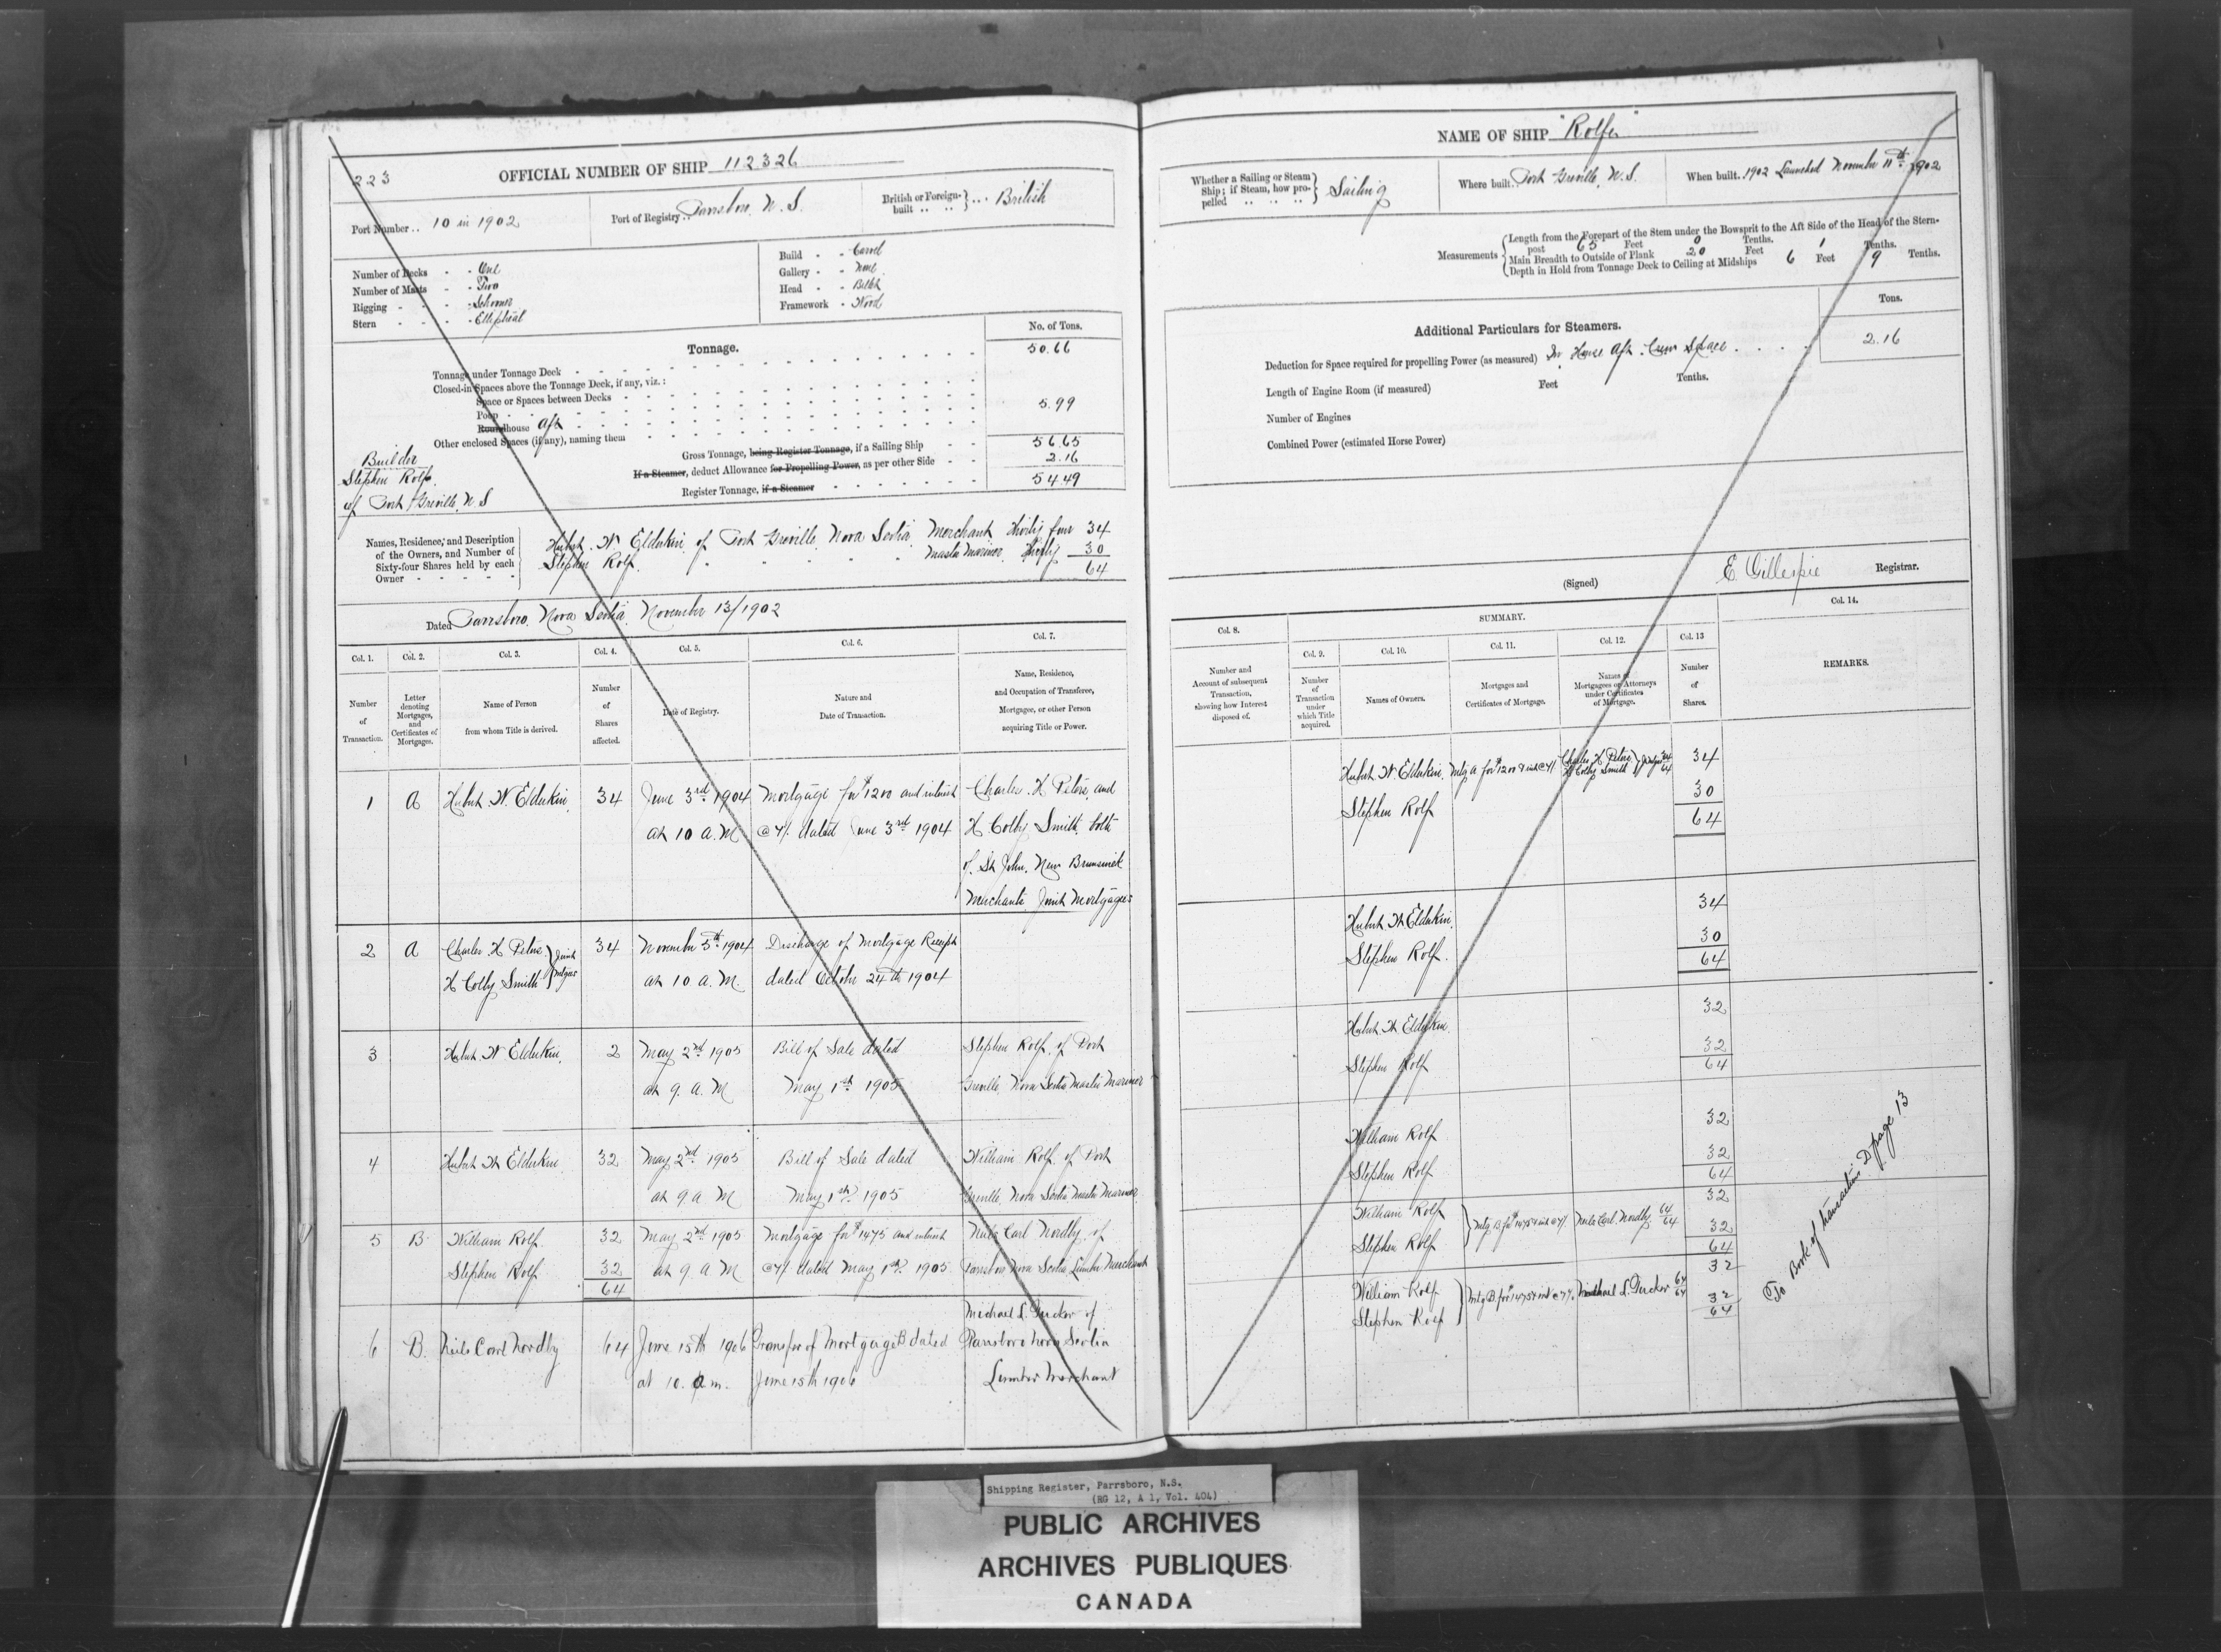 223
OFFICIAL NUMBER OF SHIP 112326
Port Number .. 10 in 1902
Port of Registry .. Parrsboro, N. S.
British or Foreign-built .. .. } .. British
Number of Decks - - One
Number of Masts - - Two
Rigging - - - Schooner
Stern - - - - Elliptical
Build - - Carvel
Gallery - - None
Head - - Billet
Framework - Wood
Tonnage.
No. of Tons.
Tonnage under Tonnage Deck 50.66
Closed-in Spaces above the Tonnage Deck, if any, viz. :
Space or Spaces between Decks
Poop
Roundhouse Aft 5.99
Other enclosed Spaces (if any), naming them
Gross Tonnage, being Register Tonnage, if a Sailing Ship 56.65
If a Steamer, deduct Allowance for Propelling Power, as per other Side 2.16
Register Tonnage, if a Steamer 54.49
Builder
Stephen Rolf.
of Port Greville, N. S
Names, Residence, and Description of the Owners, and Number of Sixty-four Shares held by each Owner
Hubert. W. Elderkin of Port Greville, Nova Scotia, Merchant thirty four 34
Stephen Rolf. " " " " Master Mariner thirty 30
64
Dated Parrsboro, Nova Scotia, November 13/1902
Col. 1. Col. 2. Col. 3. Col. 4. Col. 5. Col. 6. Col. 7.
Number of Transaction.
Letter denoting Mortgages, and Certificates of Mortgages.
Name of Person from whom Title is derived.
Number of Shares affected.
Date of Registry.
Nature and Date of Transaction.
Name, Residence, and Occupation of Transferee, Mortgagee, or other Person acquiring Title or Power.
1 A Hubert. W. Elderkin 34 June 3rd 1904 Mortgage for $1200 and interest Charles. H. Peters, and
at 10 A. M @ 7% dated June 3rd 1904 H Colby Smith, both
of St John, New Brunswick
Merchants Joint Mortgagees
2 A Charles. H. Peters } Joint 34 November 5th 1904 Discharge of Mortgage Receipt
H Colby Smith } Mtgees at 10 A. M. dated October 24th 1904
3 Hubert. W. Elderkin. 2 May 2nd 1905 Bill of Sale dated Stephen Rolf of Port
at 9. A. M May 1st 1905 Greville, Nova Scotia Master Mariner
4 Hubert W Elderkin 32 May 2nd 1905 Bill of Sale dated William Rolf, of Port
at 9 A M May 1st 1905 Greville, Nova Scotia Master Mariner
5 B William Rolf. 32 May 2nd 1905 Mortgage for $1475 and interest Neils Carl Nordby, of
Stephen Rolf 32 at 9. A M @ 7% dated May 1st 1905 Parrsboro Nova Scotia Lumber Merchant
64
6 B. Neils Carl Nordby 64 June 15th 1906 Transfer of Mortgage B dated Michael L. Tucker of
at 10. a.m. June 15th 1906 Parrsboro Nova Scotia
Lumber Merchant
NAME OF SHIP "Rolfe"
Whether a Sailing or Steam Ship; if Steam, how propelled } Sailing
Where built. Port Greville, N. S.
When built. 1902 Launched November 11th 1902
Measurements
Length from the Forepart of the Stem under the Bowsprit to the Aft Side of the Head of the Stern-post 65 Feet 0 Tenths.
Main Breadth to Outside of Plank 20 Feet 1 Tenths.
Depth in Hold from Tonnage Deck to Ceiling at Midships 6 Feet 9 Tenths.
Additional Particulars for Steamers.
Tons.
Deduction for Space required for propelling Power (as measured) In House Aft. Crew Space 2.16
Length of Engine Room (if measured) Feet Tenths.
Number of Engines
Combined Power (estimated Horse Power)
(Signed) E. Gillespie Registrar.
Col. 8. SUMMARY. Col. 14.
Col. 9. Col. 10. Col. 11. Col. 12. Col. 13
Number and Account of subsequent Transaction, showing how Interest disposed of.
Number of Transaction under which Title acquired.
Names of Owners.
Mortgages and Certificates of Mortgage.
Names of Mortgagees or Attorneys under Certificates of Mortgage.
Number of Shares.
REMARKS.
Hubert. W. Elderkin. Mtg A for $1200 & int @ 7% Charles H Peters H Colby Smith } 34
Stephen Rolf 30
64
Hubert. W Elderkin. 34
Stephen Rolf. 30
64
Hubert. W Elderkin. 32
Stephen Rolf 32
64
William Rolf 32
Stephen Rolf 32
64
William Rolf 32
Stephen Rolf } Mtg B for $1475 & int @ 7% Neils Carl Nordby 64/64 32
64
William Rolf 32
Stephen Rolf } Mtg B. for $1475 & int @ 7% Michael L. Tucker 64/64 32
64
To Book of transactions D page 13
Shipping Register, Parrsboro, N.S.
(RG 12, A 1, Vol. 404)
PUBLIC ARCHIVES
ARCHIVES PUBLIQUES
CANADA